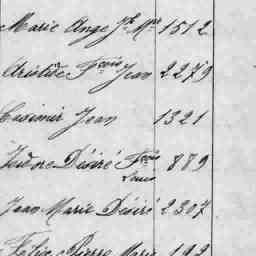 Marie Ange Jh Mie 1512
Aristide Fçois Jean 2279
Casimir Jean 1321
Isidore Désiré Fçois 889
Louis
Jean Marie Désiré 2307
Félix Pierre Marie 192